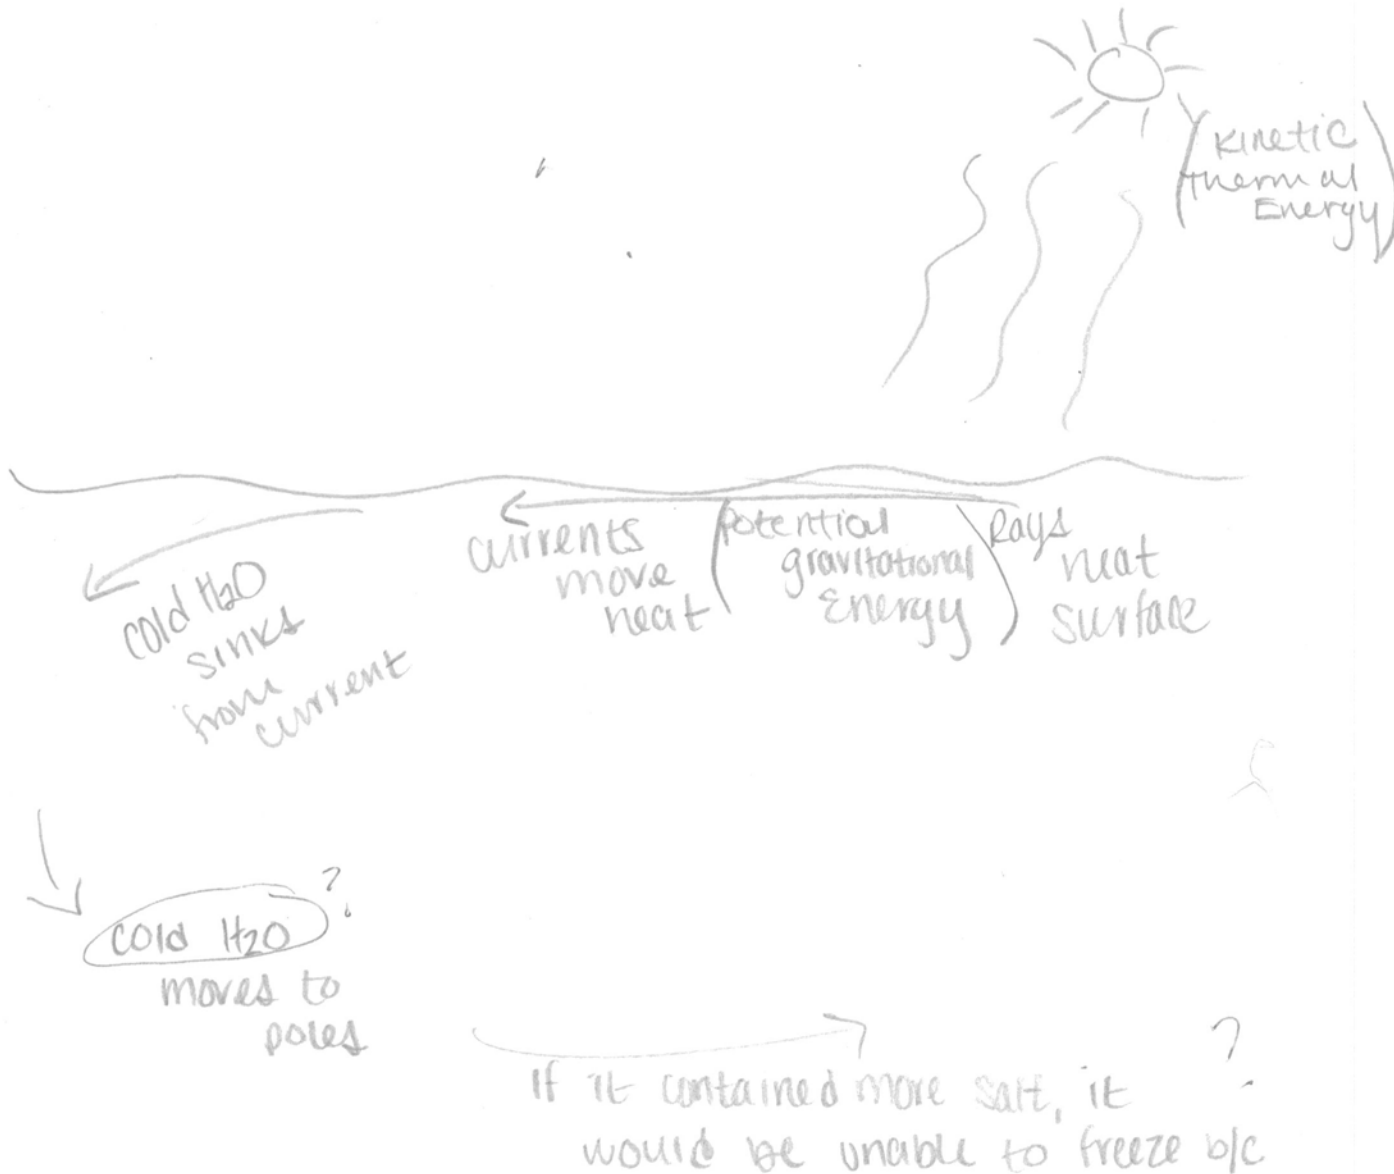 (Kinetic
thermal
Energy)
currents
move
heat
(potential
gravitational
Energy)
Rays
heat
surface
cold H2O
sinks
from
current
cold H2O ?
moves to
poles
If it contained more salt, it ?
would be unable to freeze b/c